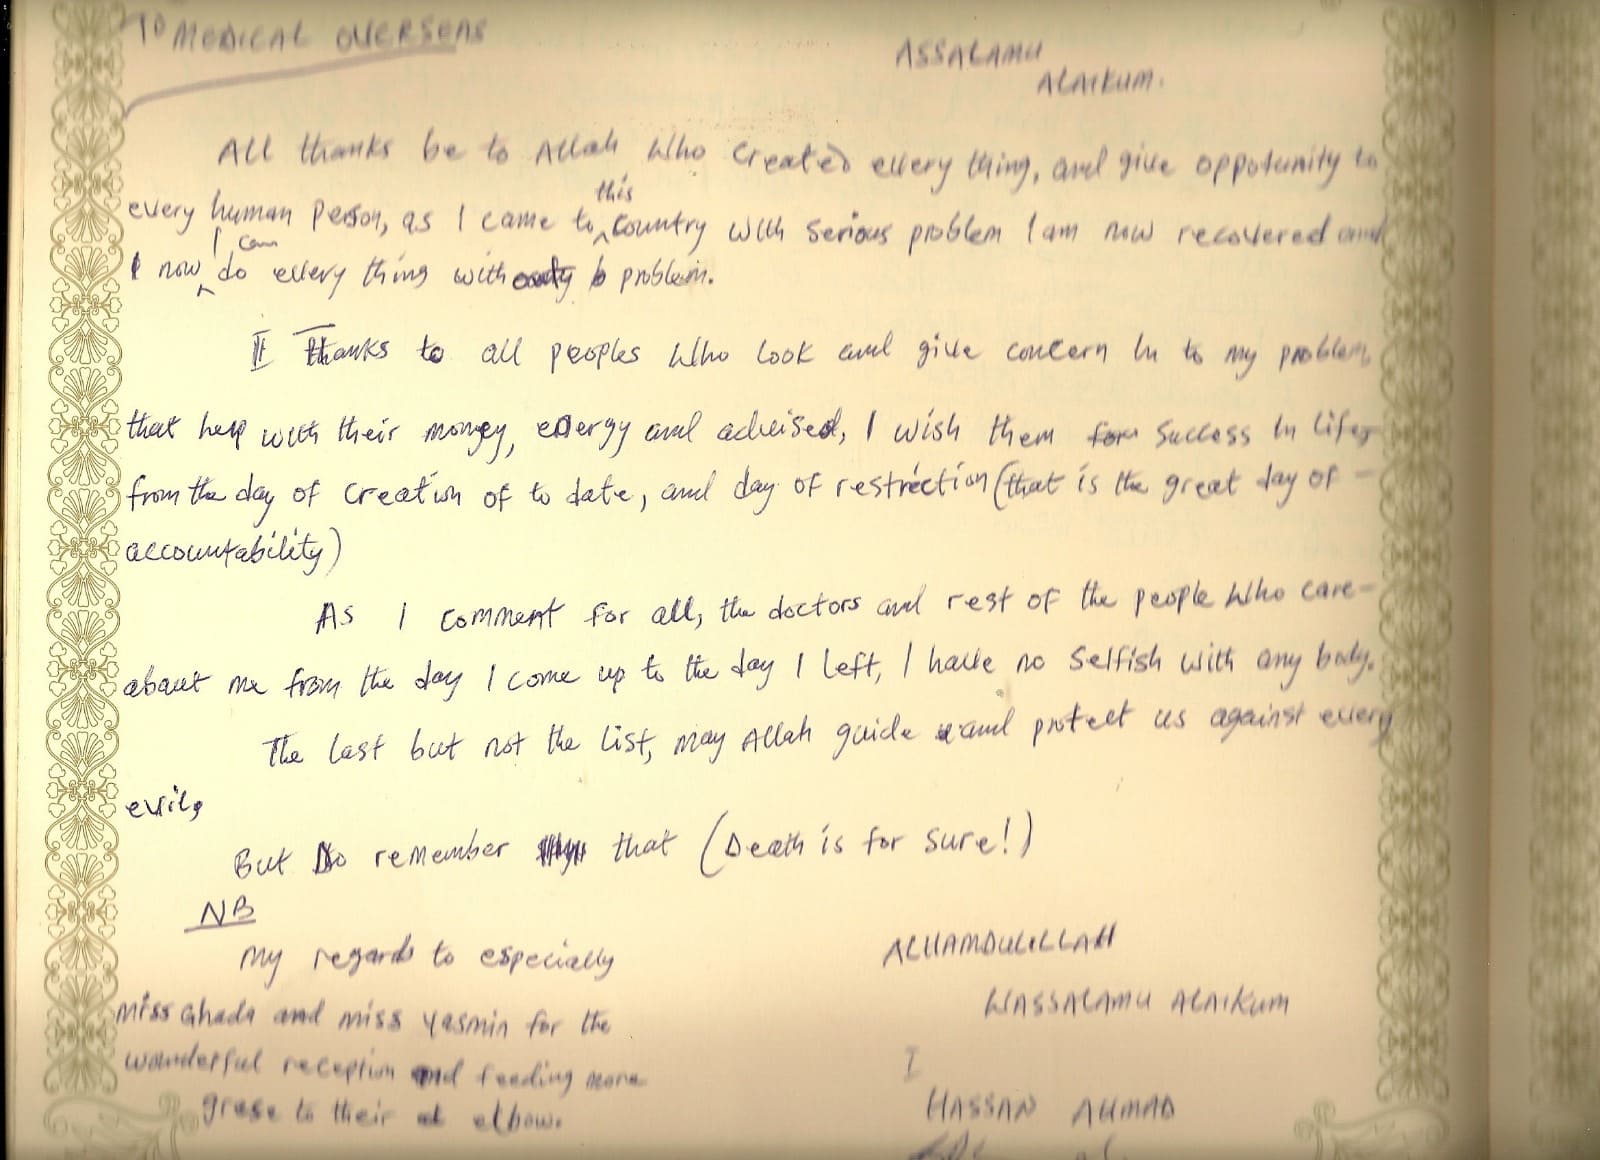 TO MEDICAL OVERSEAS
ASSALAMU
ALAIKUM.
All thanks be to Allah Who created every thing, and give oppotunity to
every human person, as I came to this country with serious problem I am now recovered and
now I can do every thing with problem.
I Thanks to all peoples Who look and give concern In to my problem,
that help with their money, energy and adviised, I wish them for success In life,
from the day of creation of to date, and day of restriction (that is the great day of -
accountability)
As I comment for all, the doctors and rest of the people Who care-
about me from the day I come up to the day I left, I have no selfish with any body.
The last but not the list, may Allah guide and protect us against every
evil,
But Do remember that (Death is for sure!)
NB
My regards to especially
miss Ghada and miss Yasmin for the
wonderful reception and feeding more
grese to their elbow.
ALHAMDULILLAH
WASSALAMU ALAIKUM
I
HASSAN AHMAD